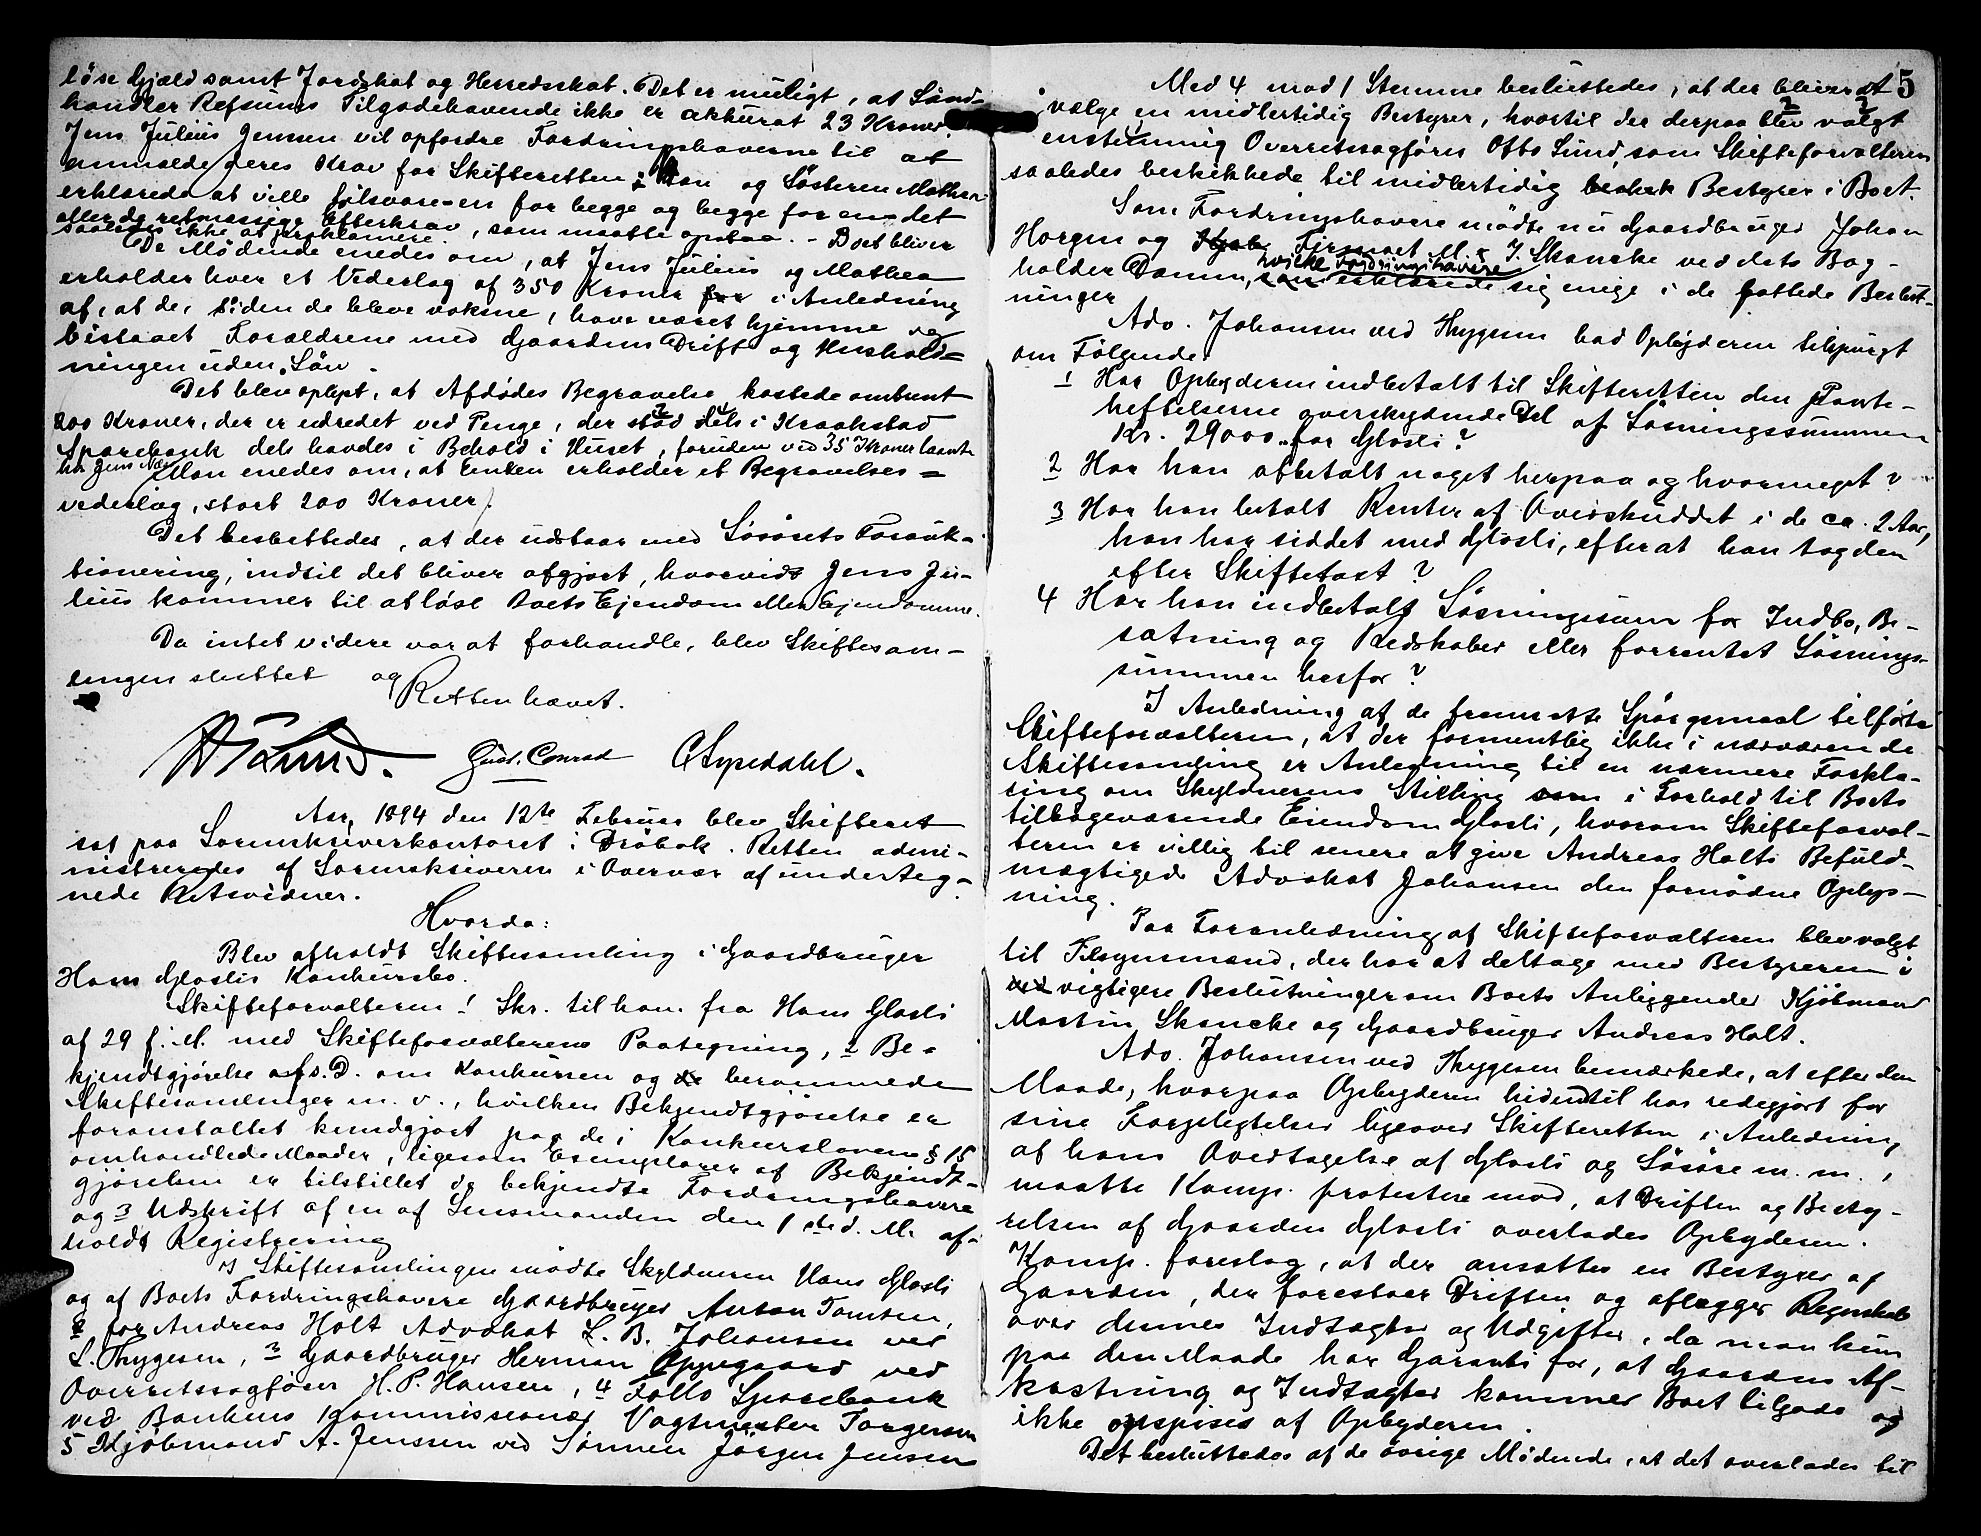 löse Gjæld samt Jordskat og Herredsskat. Det er muligt, at Land-
handler Refsums Tilgodehavende ikke er akkurat 23 Kroner.
Jens Julius Jensen vil opfordre Fordringshaverne til at
anmelde deres Krav for Skifteretten; han og Søsteren Mathea
erklærede at ville tilsvare en for begge og begge for en det
eller de retmæssige Efterkrav, som maatte opstaa. - Boet bliver
saaledes ikke at proklamere.
De Mødende enedes om, at Jens Julius og Mathea
erholder hver et Vederlag af 350 Kroner for i Anledning
af, at de, siden de bleve voksne, have været hjemme og
bistaaet Forældrene med Gaardens Drift og Hushold=
ningen uden Løn.
Det blev oplyst, at Afdødes Begravelse kostede omtrent
200 Kroner, der er udredet ved Penge, der stod dels i Kraakstad
Sparebank dels havdes i Behold i Huset, foruden ved 35 Kroner laante
hos Jens Næs. Man enedes om, at Enken erholder et Begravelses=
vederlag, stort 200 Kroner.
Det besluttedes, at der udstaar med Løsørets Forauk-
tionering, indtil det bliver afgjort, hvorvidt Jens Ju-
lius kommer til at løse Boets Ejendom eller Ejendomme.
Da intet videre var at forhandle, blev Skiftesam-
lingen sluttet og
Retten hævet.
Gust. Conrad C Sypedahl.
Aar 1894 den 12te Februar blev Skifteret
sat paa Sorenskriverkontoret i Drøbak. Retten admi-
nistreredes af Sorenskriveren i Overvær af underteg-
nede Retsvidner.
Hvorda:
Blev afholdt Skiftesamling i Gaardbruger
Hans Glaslis Konkursbo.
Skifteforvalteren 1 Skr. til ham fra Hans Glasli
af 29 f. M. med Skifteforvalterens Paategning, 2 Be-
kjendtgjørelse af s. D. om Konkursen og de berammede
Skiftesamlinger m. v., hvilken Bekjendtgjørelse er
foranstaltet kundgjort paa de i Konkursloven § 15
omhandlede Maader, ligesom Exemplarer af Bekjendt-
gjørelsen er tilstillet de bekjendte Fordringshavere
og 3 Udskrift af en af Lensmanden den 1ste d. M. af-
holdt Registrering
I Skiftesamlingen mødte Skyldneren Hans Glasli
og af Boets Fordringshavere Gaardbruger Anton Tomten,
2 for Andreas Holt Advokat L. B. Johansen ved
L. Thygesen, 3 Gaardbruger Herman Oppegaard ved
Overretssagfører H. P. Hansen, 4 Follo Sparebank
ved Bankens Kommissionær Vagtmester Torgersen
5 Kjøbmand A. Jenssen ved Sønnen Jørgen Jensen
5
Med 4 mod 1 Stemme besluttedes, at der bliver at
vælge en midlertidig Bestyrer, hvortil der derpaa blev valgt
enstemmig Overretssagfører Otto Lund, som Skifteforvalteren
saaledes beskikkede til midlertidig Bestyrer i Boet.
Som Fordringshavere mødte nu Gaardbruger Johan
Horgen og Firmaet M. & J. Skancke ved dets Bog-
holder Damm, hvilke Fordringshavere erklærede sig enige i de fattede Beslut-
ninger
Adv. Johansen ved Thygesen bad Opbyderen tilspurgt
om Følgende
1 Har Opbyderen indbetalt til Skifteretten den Pante-
heftelserne overskydende Del af Løsningssummen
Kr. 29000.. for Glasli?
2 Har han afbetalt noget herpaa og hvormeget?
3 Har han betalt Renter af Overskuddet i de ca. 2 Aar,
han har siddet med Glasli, efterat han tog den
efter Skiftetaxt?
4 Har han indbetalt Løsningssum for Indbo, Be-
sætning og Redskaber eller forrentet Løsnings-
summen herfor?
I Anledning af de fremsatte Spørgsmaal tilførte
Skifteforvalteren, at der formentlig ikke i nærværende
Skiftesamling er Anledning til en nærmere Forkla-
ring om Skyldnerens Stilling som i Forhold til Boets
tilbageværende Eiendom Glasli, hvorom Skifteforval-
teren er villig til senere at give Andreas Holts Befuld-
mægtigede Advokat Johansen den fornødne Oplys-
ning.
Paa Foranledning af Skifteforvalteren blev valgt
til Tilsynsmænd, der har at deltage med Bestyreren i
ved vigtigere Beslutninger om Boets Anliggender Kjøbmand
Martin Skancke og Gaardbruger Andreas Holt.
Adv. Johansen ved Thygesen bemærkede, at efter den
Maade, hvorpaa Opbyderen hidentil har redegjort for
sine Forpligtelser ligeover Skifteretten i Anledning
af hans Overtagelse af Glasli og Løsøre m. m.,
maatte Komp. protestere mod, at Driften og Besty-
relsen af Gaarden Glasli overlades Opbyderen.
Komp. foreslog, at der ansættes en Bestyrer af
Gaarden, der forestaar Driften og aflægger Regnskab
over dennes Indtægter og Udgifter, da man kun
paa den Maade har Garanti for, at Gaardens Af-
kastning og Indtægter kommer Boet tilgode og
ikke opspises af Opbyderen.
Det besluttedes af de øvrige Mødende, at det overlades til